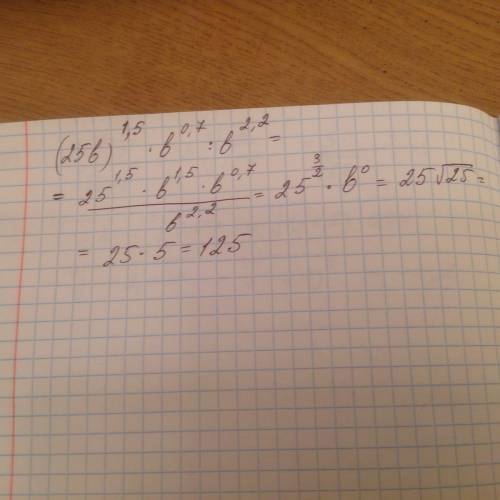 (25b)^{1,5} · b^{0,7} : b^{2,2} =
= \frac{25^{1,5} · b^{1,5} · b^{0,7}}{b^{2,2}} = 25^{\frac{3}{2}} · b^0 = 25\sqrt{25} =
= 25 · 5 = 125